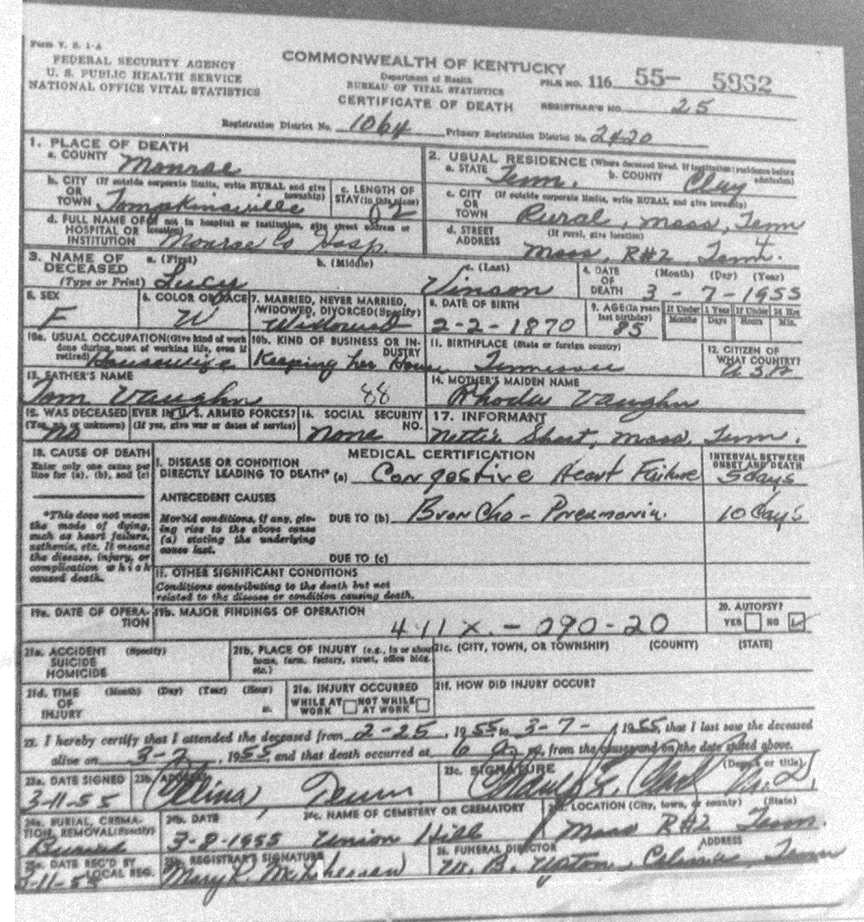 Form V. S. 1-A
FEDERAL SECURITY AGENCY
U. S. PUBLIC HEALTH SERVICE
NATIONAL OFFICE VITAL STATISTICS
COMMONWEALTH OF KENTUCKY
Department of Health
BUREAU OF VITAL STATISTICS
CERTIFICATE OF DEATH
FILE NO. 116 55- 5962
REGISTRAR'S NO. 25
Registration District No. 1064 Primary Registration District No. 2420
1. PLACE OF DEATH
a. COUNTY Monroe
b. CITY (If outside corporate limits, write RURAL and give township)
OR
TOWN Tompkinsville
c. LENGTH OF STAY (in this place)
d. FULL NAME OF (If not in hospital or institution, give street address or location)
HOSPITAL OR
INSTITUTION Monroe Co Hosp.
2. USUAL RESIDENCE (Where deceased lived. If institution: residence before admission)
a. STATE Tenn. b. COUNTY Clay
c. CITY (If outside corporate limits, write RURAL and give township)
OR
TOWN Rural, Moss, Tenn
d. STREET ADDRESS (If rural, give location)
Moss, R#2 Tenn.
3. NAME OF DECEASED (Type or Print)
a. (First) Lucy b. (Middle) c. (Last) Vinson
4. DATE OF DEATH (Month) (Day) (Year)
3-7-1955
5. SEX
F
6. COLOR OR RACE
W
7. MARRIED, NEVER MARRIED, WIDOWED, DIVORCED (Specify)
Widowed
8. DATE OF BIRTH
2-2-1870
9. AGE (In years last birthday)
85
If Under 1 Year
Months Days
If Under 24 Hrs
Hours Min.
10a. USUAL OCCUPATION (Give kind of work done during most of working life, even if retired)
Housewife
10b. KIND OF BUSINESS OR INDUSTRY
Keeping her House
11. BIRTHPLACE (State or foreign country)
Tennessee
12. CITIZEN OF WHAT COUNTRY?
U.S.A
13. FATHER'S NAME
Tom Vaughn 88
14. MOTHER'S MAIDEN NAME
Rhoda Vaughn
15. WAS DECEASED EVER IN U. S. ARMED FORCES?
(Yes, no or unknown) (If yes, give war or dates of service)
No
16. SOCIAL SECURITY NO.
None
17. INFORMANT
Nettie Short, Moss, Tenn.
18. CAUSE OF DEATH
Enter only one cause per line for (a), (b), and (c)
*This does not mean the mode of dying, such as heart failure, asthenia, etc. It means the disease, injury, or complication which caused death.
MEDICAL CERTIFICATION
INTERVAL BETWEEN ONSET AND DEATH
I. DISEASE OR CONDITION
DIRECTLY LEADING TO DEATH* (a) Congestive Heart Failure 5 days
ANTECEDENT CAUSES
Morbid conditions, if any, giving rise to the above cause (a) stating the underlying cause last.
DUE TO (b) Broncho-Pneumonia. 10 days
DUE TO (c)
II. OTHER SIGNIFICANT CONDITIONS
Conditions contributing to the death but not related to the disease or condition causing death.
19a. DATE OF OPERATION
19b. MAJOR FINDINGS OF OPERATION
411X. - 090-20
20. AUTOPSY?
YES NO
21a. ACCIDENT (Specify)
SUICIDE
HOMICIDE
21b. PLACE OF INJURY (e.g., in or about home, farm, factory, street, office bldg. etc.)
21c. (CITY, TOWN, OR TOWNSHIP) (COUNTY) (STATE)
21d. TIME OF INJURY (Month) (Day) (Year) (Hour) m.
21e. INJURY OCCURRED
WHILE AT WORK NOT WHILE AT WORK
21f. HOW DID INJURY OCCUR?
22. I hereby certify that I attended the deceased from 2-25, 1955 to 3-7-, 1955, that I last saw the deceased
alive on 3-7, 1955, and that death occurred at 6 m., from the causes and on the date stated above.
23a. DATE SIGNED
3-11-55
23b. ADDRESS
Celina, Tenn
23c. SIGNATURE (Degree or title)
M.D.
24a. BURIAL, CREMATION, REMOVAL (Specify)
Burial
24b. DATE
3-8-1955
24c. NAME OF CEMETERY OR CREMATORY
Union Hill
24d. LOCATION (City, town, or county) (State)
Moss R#2 Tenn.
25a. DATE REC'D BY LOCAL REG.
3-11-55
25b. REGISTRAR'S SIGNATURE
Mary R.
26. FUNERAL DIRECTOR ADDRESS
W. B. Upton, Celina, Tenn